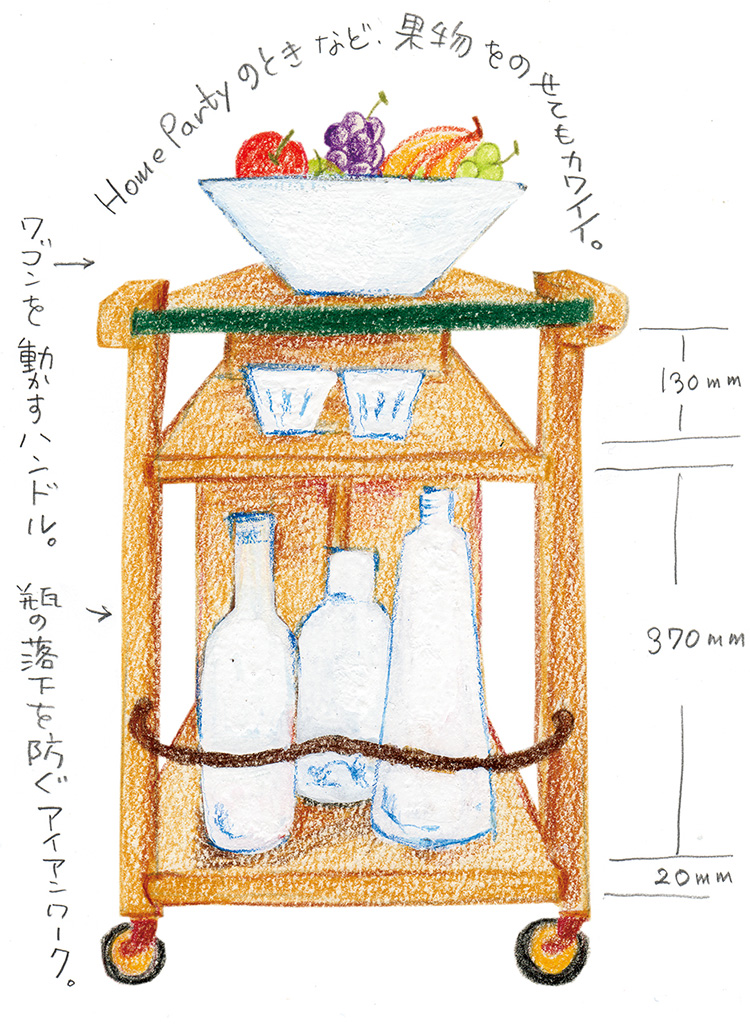 Home Partyのときなど、果物をのせてもカワイイ。
ワゴンを動かすハンドル。
瓶の落下を防ぐアイアンワーク。
130mm
370mm
20mm